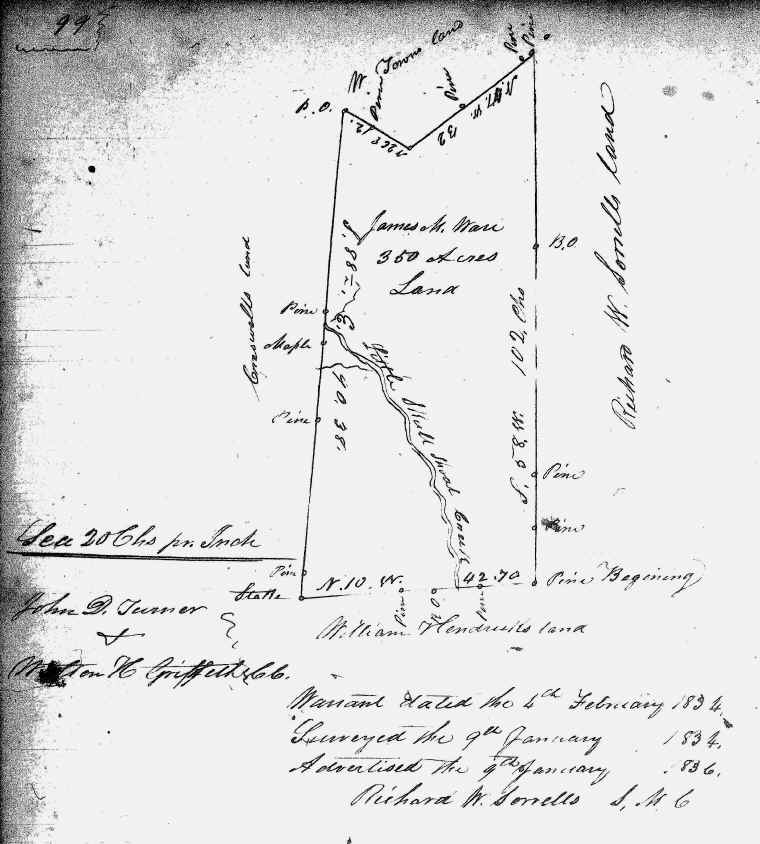 99
W. Towns land
Pine
Pine
Pine
Pine
B. O.
12.
132
N. 47. W.
James M. Ware
350 Acres
Land
B. O
Richard W. Sorrells land
Creswells land
Pine
Maple
Pine
40. 38.
Little Shoal Creek
S. 58. W. 102 Chs
Pine
Pine
Sca 20 Chs pr. Inch
Pine
Stake
N. 10. W.
42.70
Pine Begining
Pine
B O
Pine
William Hendricks land
John D. Turner
&
H Griffeth C. C.
Warrant dated the 4th February 1834
Surveyed the 9th January 1834.
Advertised the 9th January 1836.
Richard W. Sorrells S, M. C